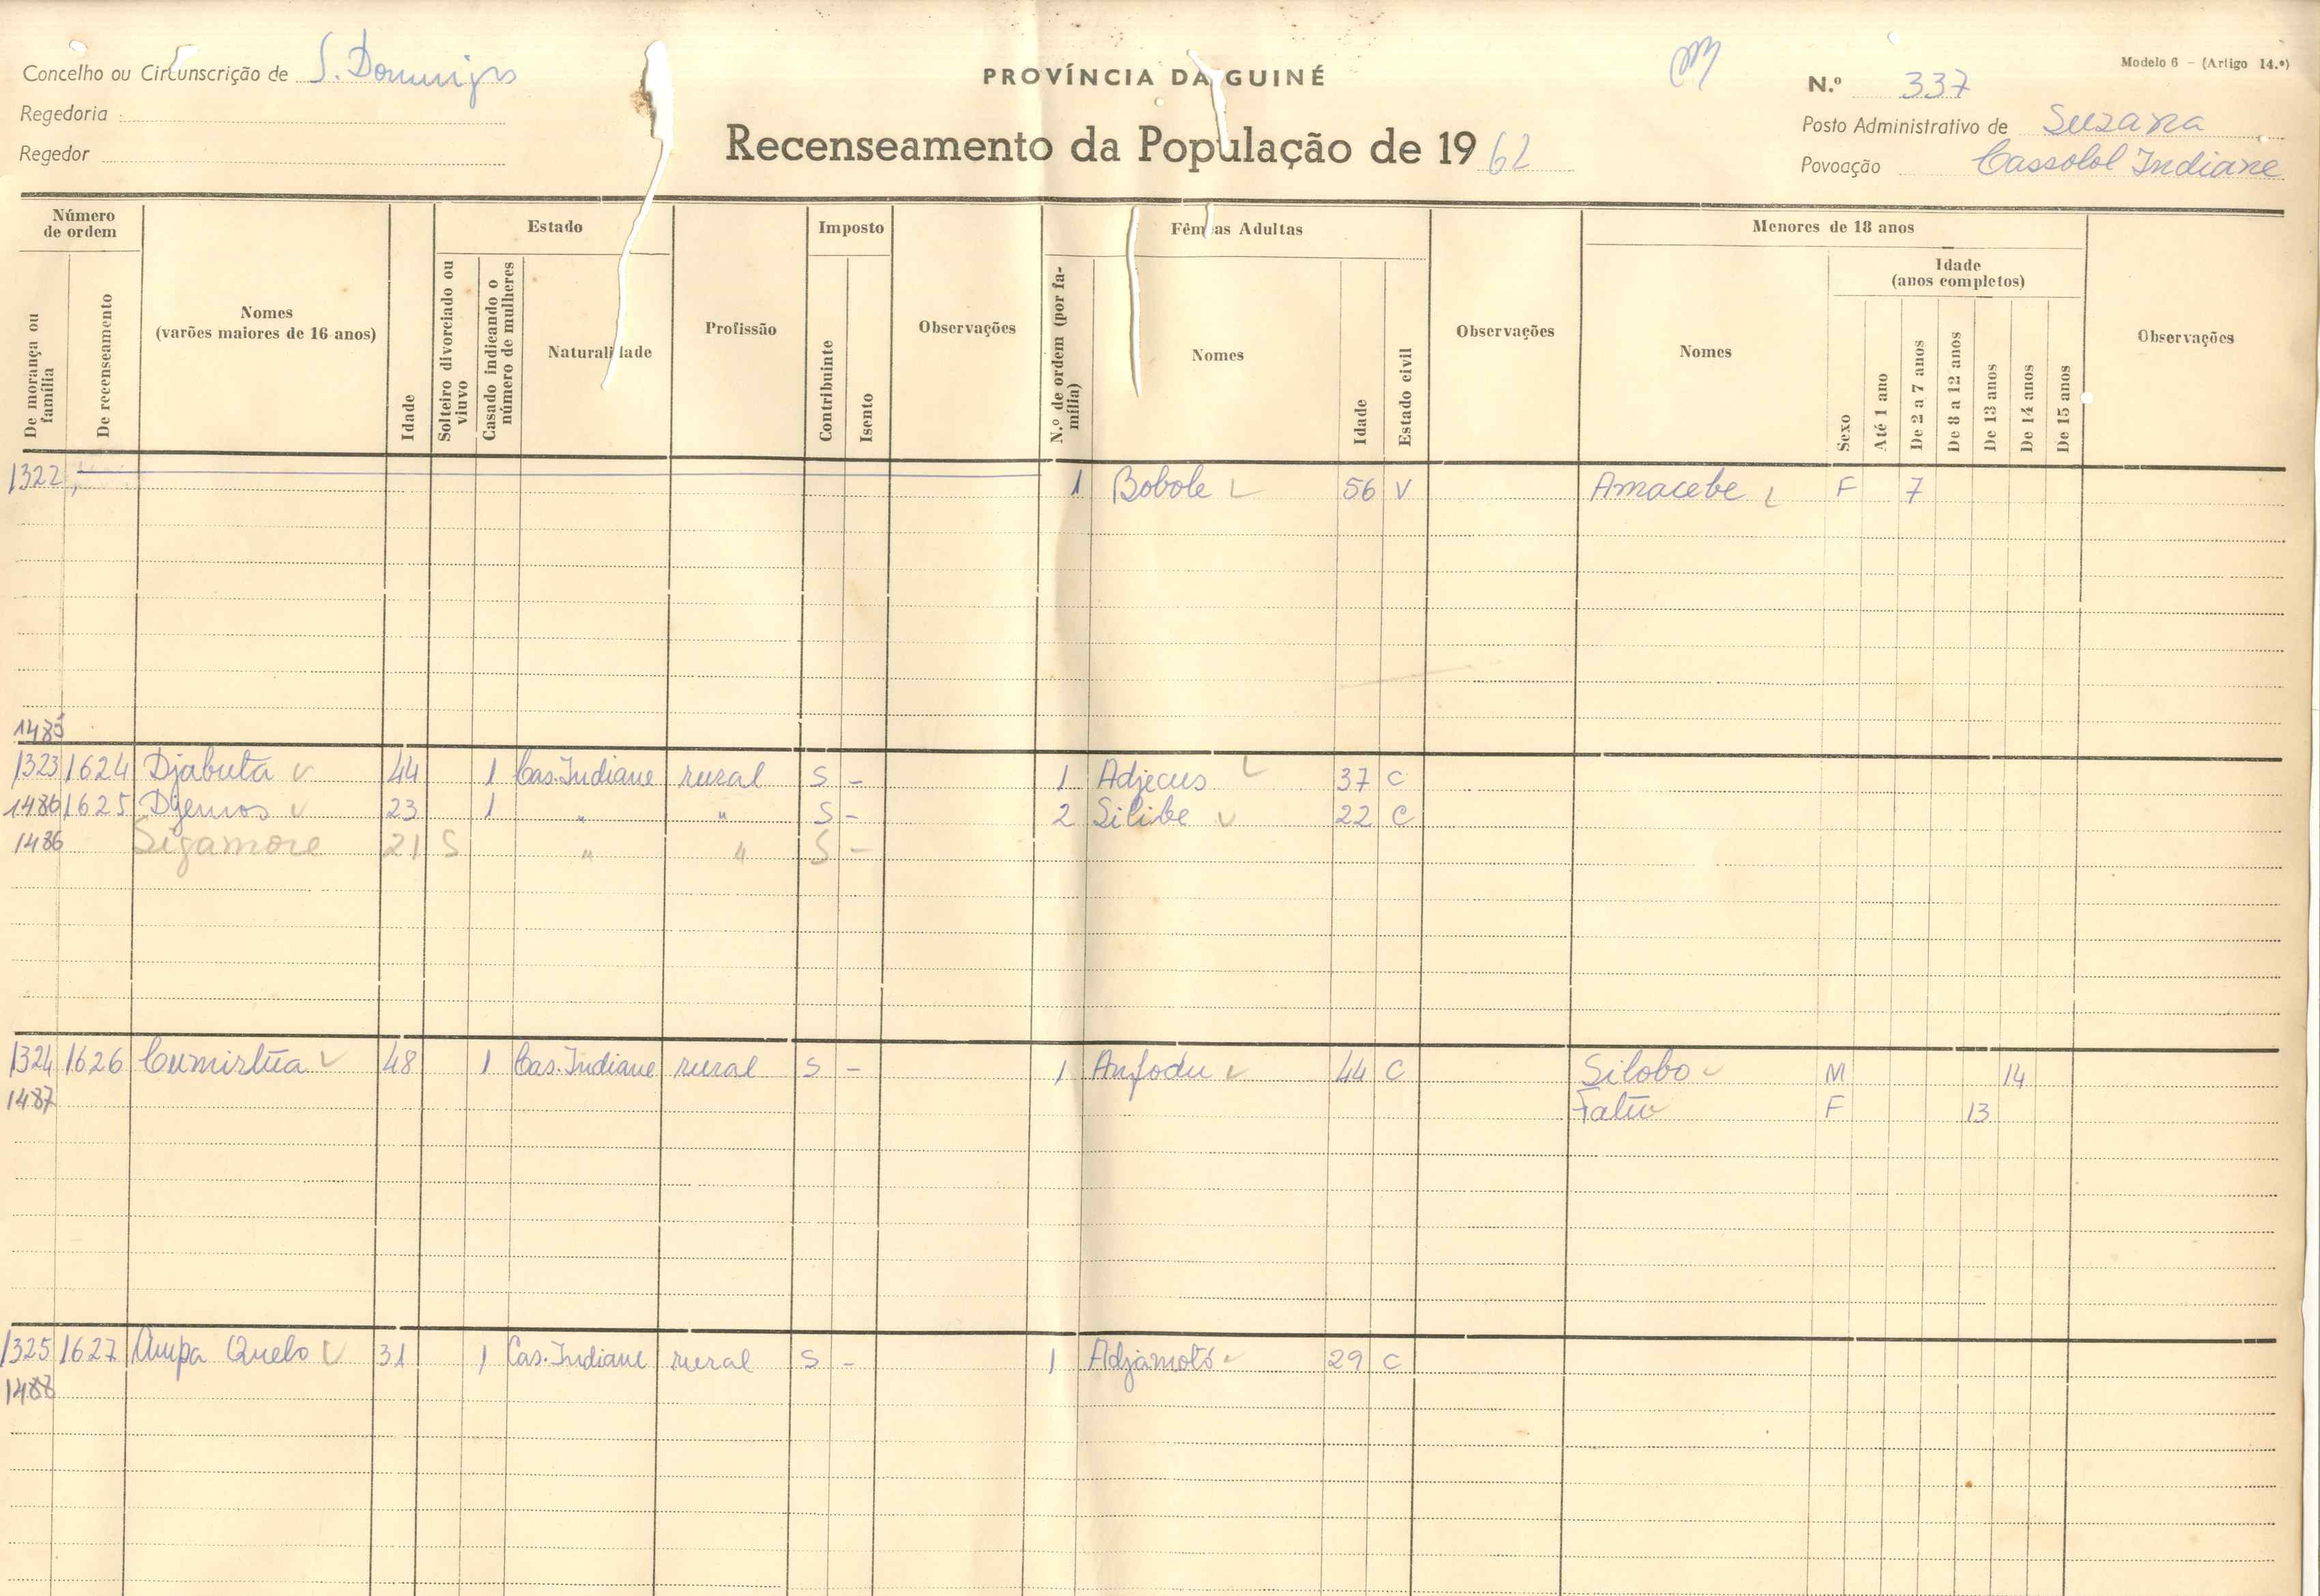 Modelo 6 - (Artigo 14.º)
Concelho ou Circunscrição de S. Domingos
PROVÍNCIA DA GUINÉ
N.º 337
Regedoria
Posto Administrativo de Suzana
Recenseamento da População de 1962
Regedor
Povoação Cassolol Indiane
Número de ordem
De morança ou família
De recenseamento
Nomes
(varões maiores de 16 anos)
Idade
Estado
Solteiro divorciado ou viuvo
Casado indicando o número de mulheres
Naturalidade
Profissão
Imposto
Contribuinte
Isento
Observações
N.º de ordem (por família)
Fêmeas Adultas
Nomes
Idade
Estado civil
Observações
Menores de 18 anos
Nomes
Sexo
Idade
(anos completos)
Até 1 ano
De 2 a 7 anos
De 8 a 12 anos
De 13 anos
De 14 anos
De 15 anos
Observações
1322 1 Bobole 56 V Amacebe F 7
1485
1323 1624 Djabuta 44 1 Cas. Indiane rural S - 1 Adjecus 37 C
1486 1625 Djemos 23 1 " " S - 2 Silibe 22 C
1486 Sigamore 21 S " " S -
1324 1626 48 1 Cas. Indiane rural S - 1 Anfodu 44 C Silobo M 14
1487 F 13
1325 1627 Quelo 31 1 Cas. Indiane rural S - 1 Adjamotó 29 C
1488